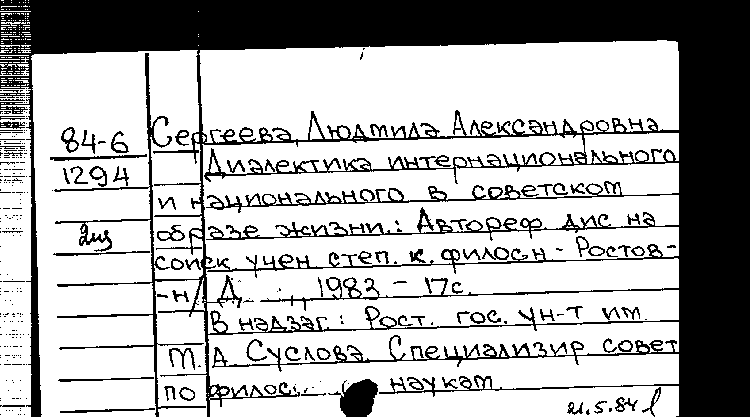 84-6 Сергеева, Людмила Александровна
1294 Диалектика интернационального
и национального в советском
2из образе жизни.: Автореф. дис на
соиск учен степ. к. филос.н - Ростов-
-н/Д., 1983. - 17с.
В надзаг.: Рост. гос. ун-т им
М.А. Суслова. Специализир совет
по филос. наукам.
21.5.84